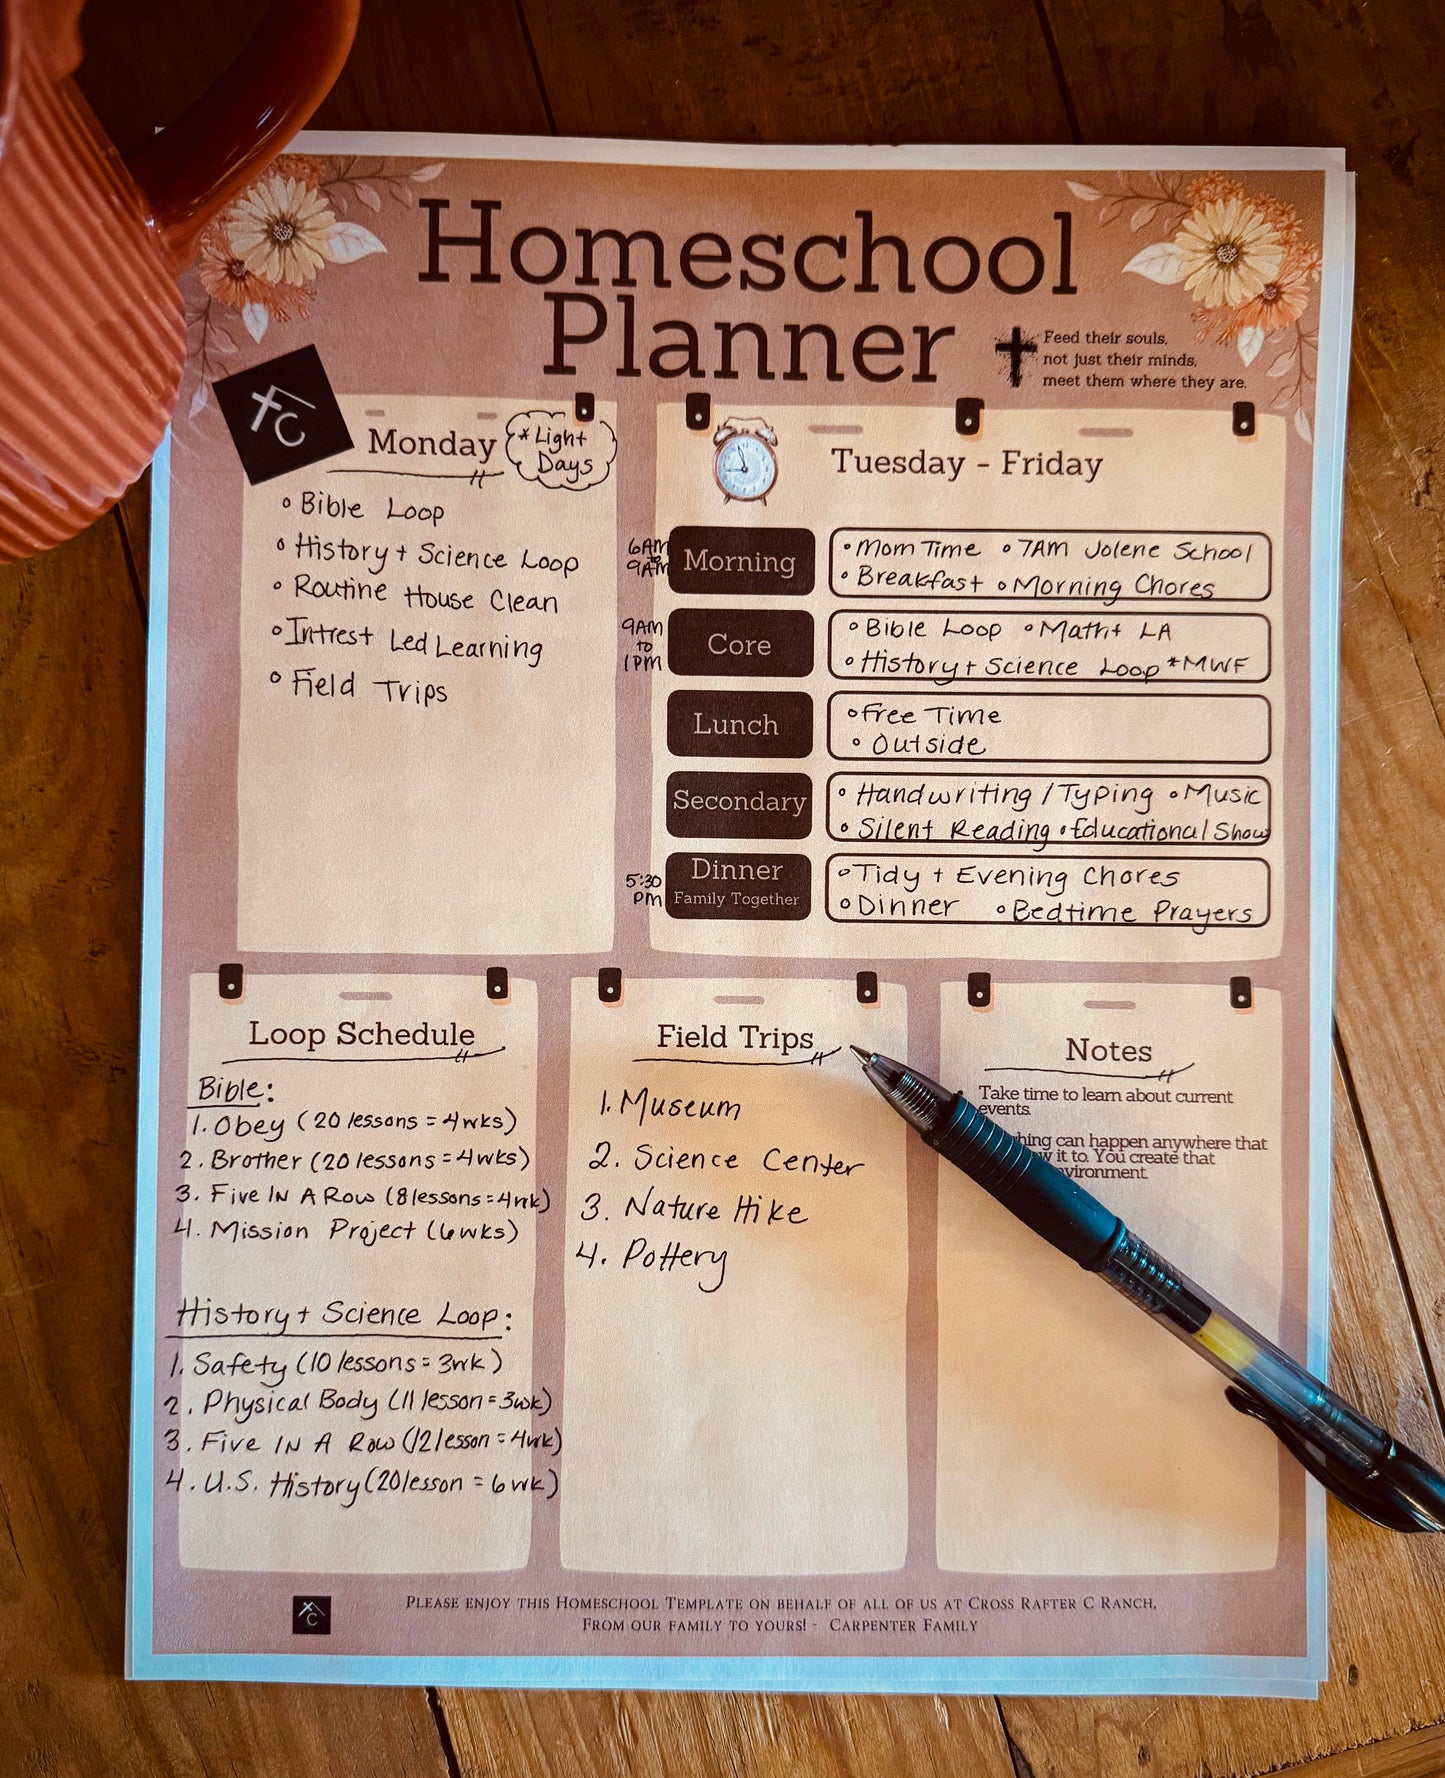 Homeschool
Planner
Feed their souls,
not just their minds,
meet them where they are.
C
Monday
*Light
Days
Bible Loop
History + Science Loop
Routine House Clean
Intrest Led Learning
Field Trips
Tuesday - Friday
6AM
to
9AM
Morning
• Mom Time • 7AM Jolene School
• Breakfast • Morning Chores
9AM
to
1PM
Core
• Bible Loop • Math + LA
• History + Science Loop *MWF
Lunch
• Free Time
• Outside
Secondary
• Handwriting / Typing • Music
• Silent Reading • Educational Show
5:30
PM
Dinner
Family Together
• Tidy + Evening Chores
• Dinner • Bedtime Prayers
Loop Schedule
Bible:
1. Obey (20 lessons = 4wks)
2. Brother (20 lessons = 4wks)
3. Five IN A Row (8 lessons = 4wk)
4. Mission Project (6wks)
History + Science Loop:
1. Safety (10 lessons = 3wk)
2. Physical Body (11 lesson = 3wk)
3. Five IN A Row (12 lesson = 4wk)
4. U.S. History (20 lesson = 6wk)
Field Trips
1. Museum
2. Science Center
3. Nature Hike
4. Pottery
Notes
Take time to learn about current
events.
can happen anywhere that
it to. You create that
Please enjoy this Homeschool Template on behalf of all of us at Cross Rafter C Ranch,
From our family to yours! - Carpenter Family
C